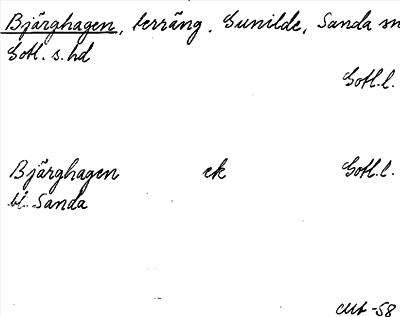 Bjärghagen, terräng. Gunilde, Sanda sn
Gotl. s. hd
Gotl.l.
Bjärghagen ek Gotl.l.
bl. Sanda
-58